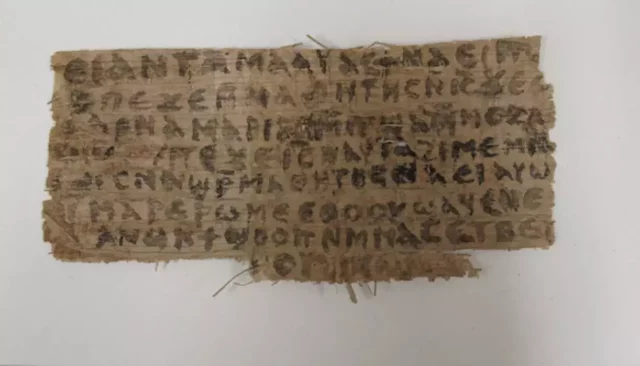 ⲉⲓ ⲁⲛ ⲧⲁⲙⲁⲁⲩ ⲁⲥϯ ⲛⲁⲉⲓ ⲡ
ⲡⲉϫⲉ ⲙⲙⲁⲑⲏⲧⲏⲥ ⲛⲓⲥ ϫⲉ
ⲁⲣⲛⲁ ⲙⲁⲣⲓⲁⲙ ⲙⲡϣⲁ ⲙⲙⲟⲥ ⲁ
ⲡⲉϫⲉ ⲓⲥ ⲛⲁⲩ ⲧⲁϩⲓⲙⲉ ⲙⲛ
ⲥⲛⲁϣⲣⲙⲁⲑⲏⲧⲏⲥ ⲛⲁⲉⲓ ⲁⲩⲱ
ⲙⲁⲣⲉⲣⲱⲙⲉ ⲉⲑⲟⲟⲩ ϣⲁϥⲉ ⲛⲉ
ⲁⲛⲟⲕ ϯϣⲟⲟⲡ ⲛⲙⲙⲁⲥ ⲉⲧⲃⲉ
ⲟⲩϩⲓⲕⲱⲛ